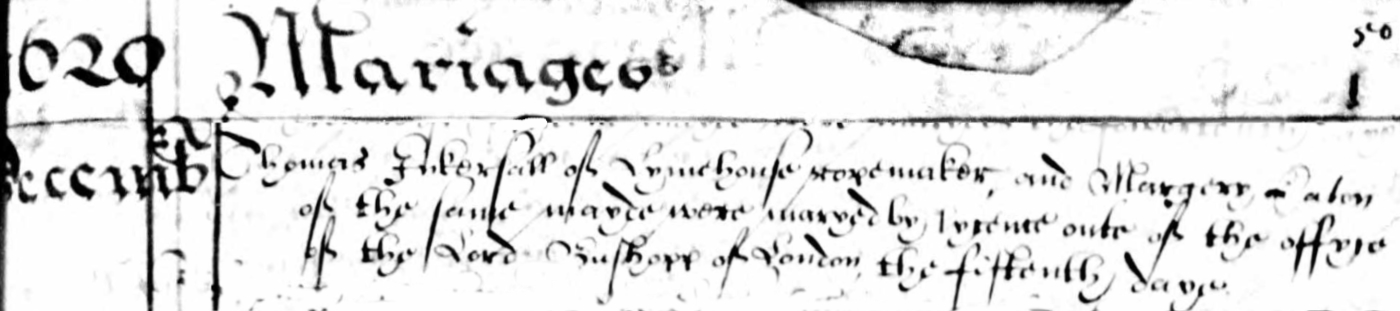 1620 Mariages
Decemb
Thomas Inkersall of Lymehouse ropemaker, and Margery
of the same mayde were maryed by lycence oute of the offyce
of the Lord Busshopp of London the fiftenth daye.